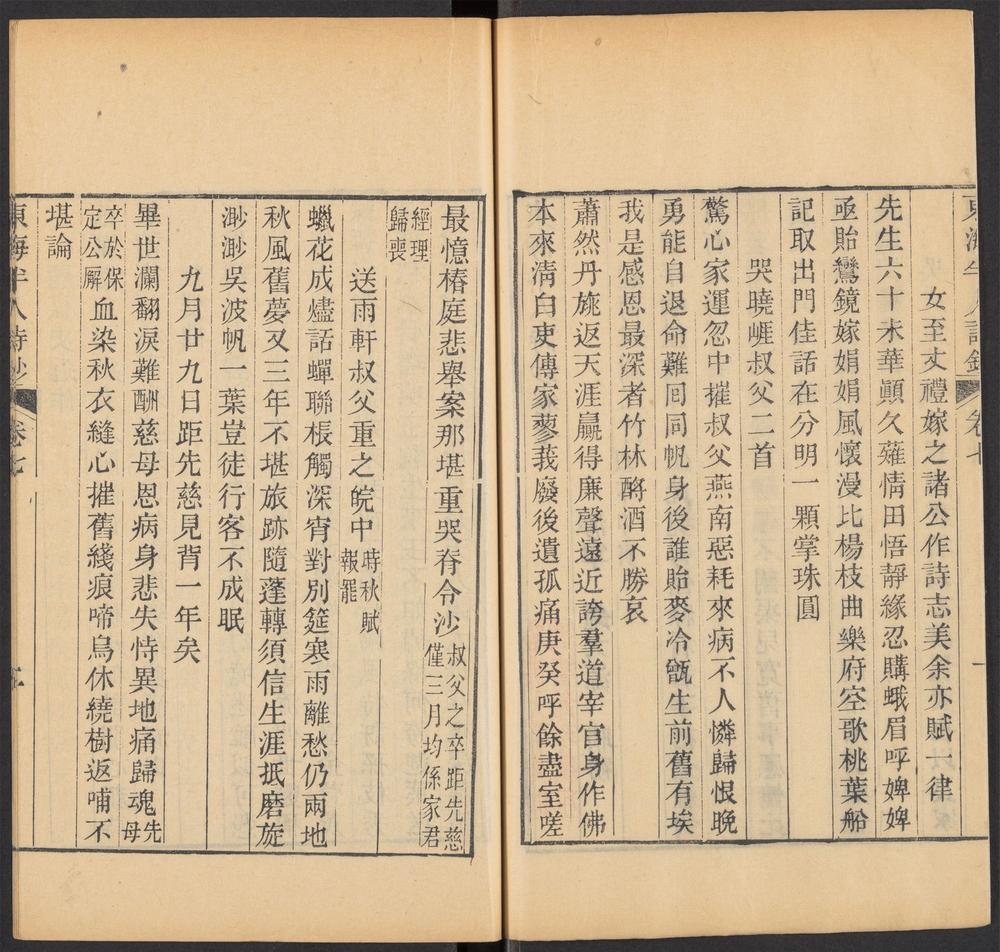 女至丈禮嫁之諸公作詩志美余亦賦以一律
先生六十未華顚久薙情田悟靜緣忍購蛾眉呼婢婢
亟貽鸞鏡嫁娟娟風懷漫比楊枝曲樂府空歌桃葉船
記取出門佳話在分明一顆掌珠圓
哭曉崕叔父二首
驚心家運忽中摧叔父燕南惡耗來病不人憐歸恨晚
勇能自退命難囘同帆身後誰貽麥冷甑生前舊有埃
我是感恩最深者竹林酹酒不勝哀
蕭然丹旐返天涯贏得廉聲遠近誇羣道宰官身作佛
本來淸白吏傳家蓼莪廢後遺孤痛庚癸呼餘盡室嗟
最憶椿庭悲舉案那堪重哭脊令沙叔父之卒距先慈僅三月均係家君
經理歸喪
送雨軒叔父重之皖中時秋賦報罷
蠟花成燼話蟬聯棖觸深宵對別筵寒雨離愁仍兩地
秋風舊夢又三年不堪旅跡隨蓬轉須信生涯抵磨旋
渺渺吳波帆一葉豈徒行客不成眠
九月廿九日距先慈見背一年矣
畢世瀾翻淚難酬慈母恩病身悲失恃異地痛歸魂先母
卒於保定公廨血染秋衣縫心摧舊綫痕啼烏休繞樹返哺不
堪論
東海半人詩鈔 卷七